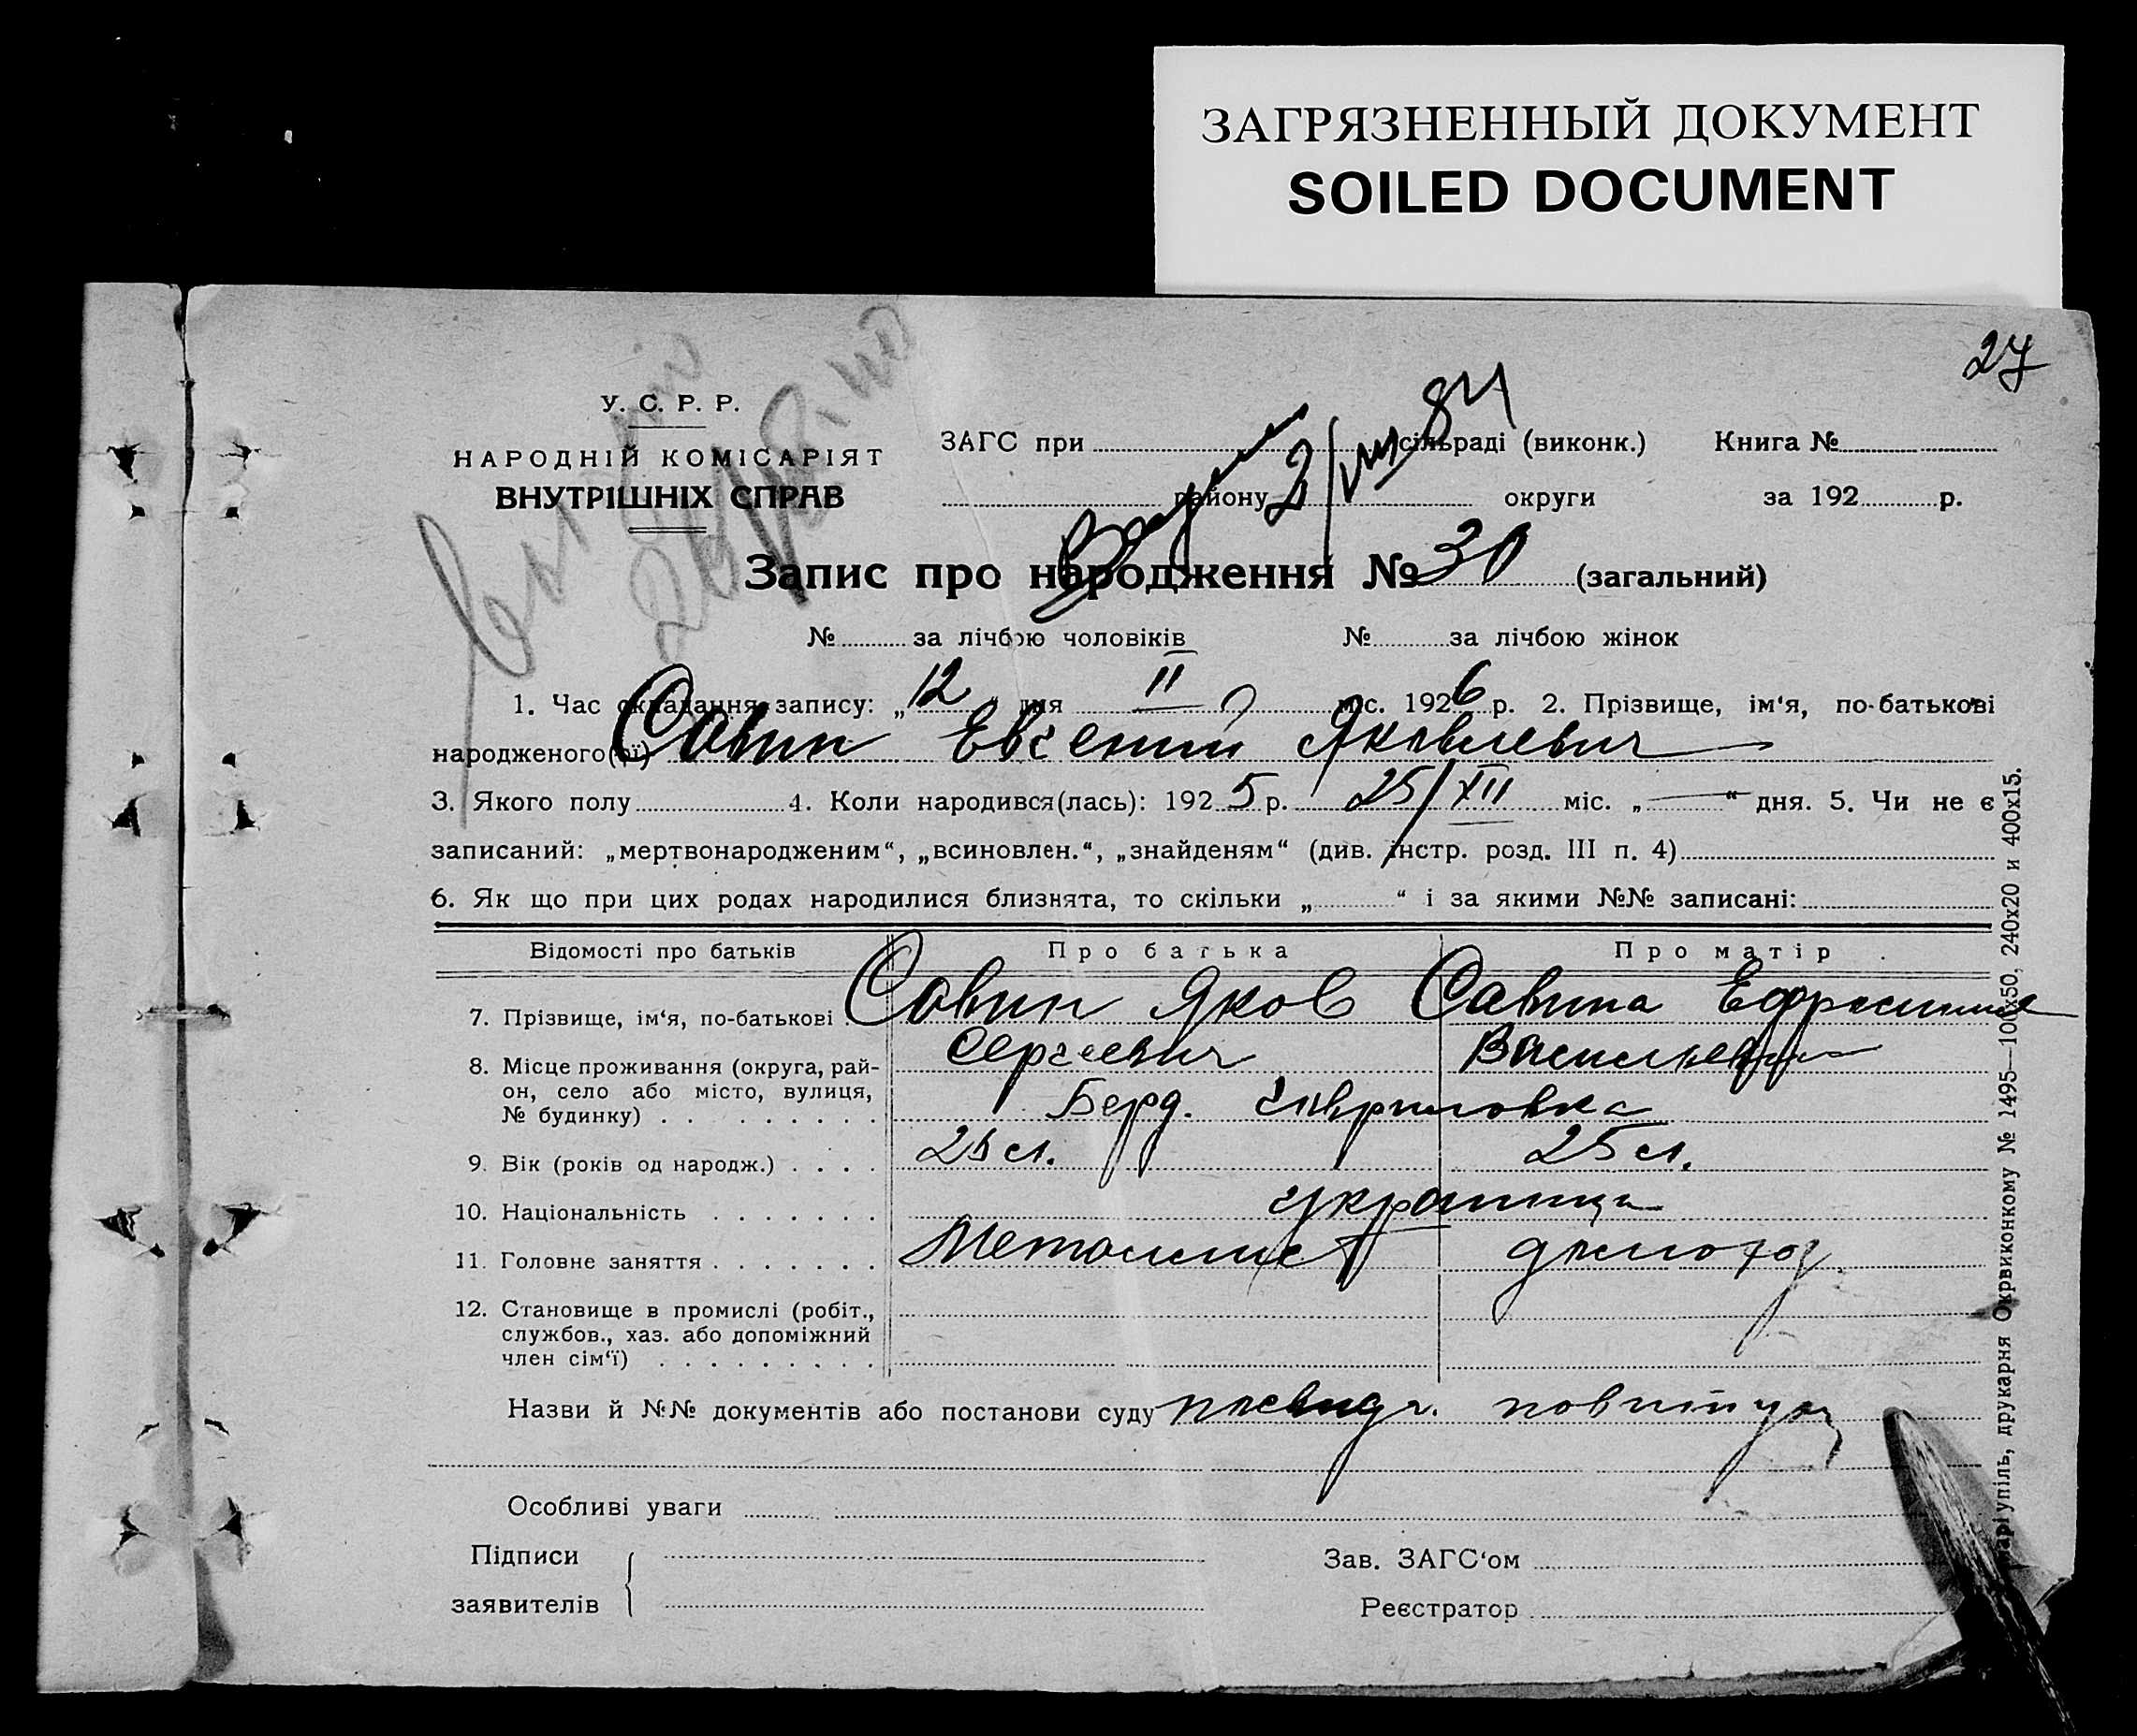 ЗАГРЯЗНЕННЫЙ ДОКУМЕНТ
SOILED DOCUMENT
27
У. С. Р. Р.
НАРОДНІЙ КОМІСАРІЯТ
ВНУТРІШНІХ СПРАВ
ЗАГС при сільраді (виконк.) Книга №
району округи за 192 р.
2/VIII 84
Запис про народження № 30 (загальний)
№ за лічбою чоловіків № за лічбою жінок
1. Час складання запису: „12“ дня II міс. 1926 р. 2. Прізвище, ім‘я, по-батькові
народженого(ої) Савин Евгений Яковлевич
3. Якого полу 4. Коли народився(лась): 1925 р. 25/XII міс. „—“ дня. 5. Чи не є
записаний: „мертвонародженим“, „всиновлен.“, „знайденям“ (див. інстр. розд. III п. 4)
6. Як що при цих родах народилися близнята, то скільки „ “ і за якими №№ записані:
Відомості про батьків Про батька Про матір
7. Прізвище, ім‘я, по-батькові Савин Яков Савина Ефросиния
Сергеевич Васильевна
8. Місце проживання (округа, рай-
он, село або місто, вулиця,
№ будинку) Берд. Гавриловка
9. Вік (років од народж.) 25 л. 25 л.
10. Національність украинцы
11. Головне заняття Металист домохоз
12. Становище в промислі (робіт.,
службов., хаз. або допоміжний
член сім‘ї)
Назви й №№ документів або постанови суду
Особливі уваги
Підписи
заявителів
Зав. ЗАГС‘ом
Реєстратор
Маріупіль, друкарня Окрвиконкому № 1495—100х50, 240х20 и 400х15.